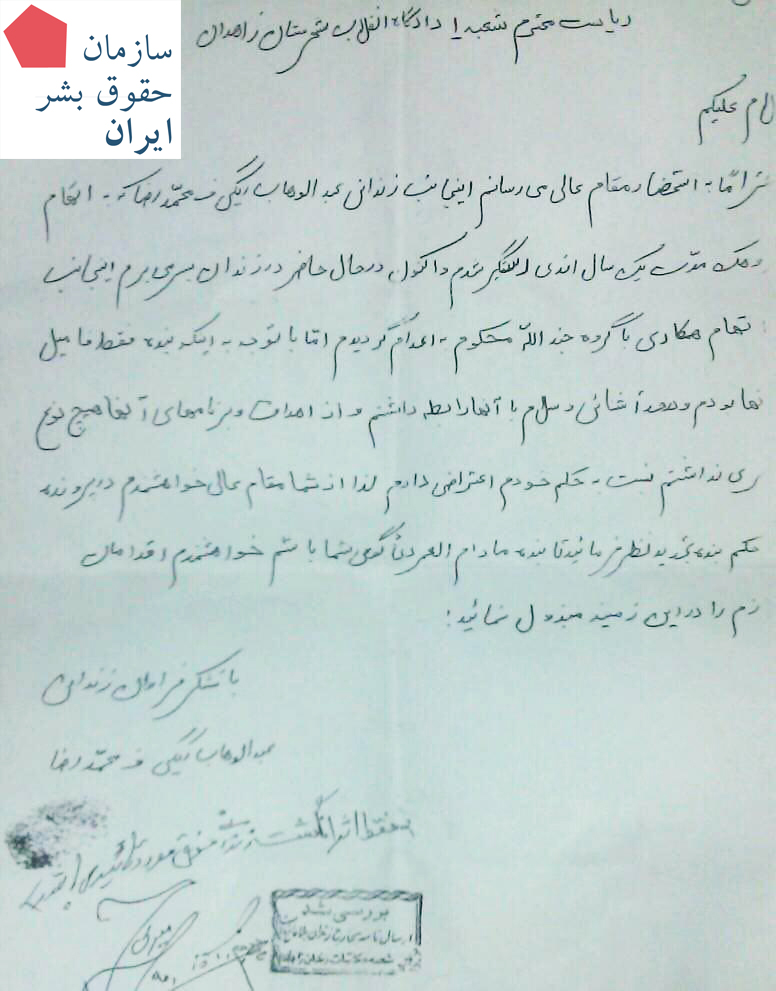 سازمان
حقوق بشر
ایران
ریاست محترم شعبه 1 دادگاه انقلاب شهرستان زاهدان
لام علیکم
تراماً به استحضار مقام عالی می رسانم اینجانب زندانی عبدالوهاب ریگی ف محمّدرضا که به اتهام
مدّت یک سال اندی دستگیر شدم و اکنون در حال حاضر در زندان بسر می برم اینجانب
اتهام همکاری با گروه جندالله محکوم به اعدام گردیدم امّا با توجه به اینکه بنده فقط فامیل
نها بودم و در حد آشنائی و سلام با آنها رابطه داشتم و از اهداف و برنامه های آنها هیچ نوع
ری نداشتم نسبت به حکم خودم اعتراض دارم لذا از شما مقام عالی خواهشمندم در پرونده
حکم بنده تجدید نظر فرمائید تا بنده مادام العمر دعاگوی شما باشم خواهشمندم اقدامات
زم را در این زمینه مبذول نمائید:
با تشکر فراوان زندانی
عبدالوهاب ریگی ف محمّدرضا
فقط اثر انگشت زندانی فوق مورد تائید می باشد
بررسی شد
ارسال نامه